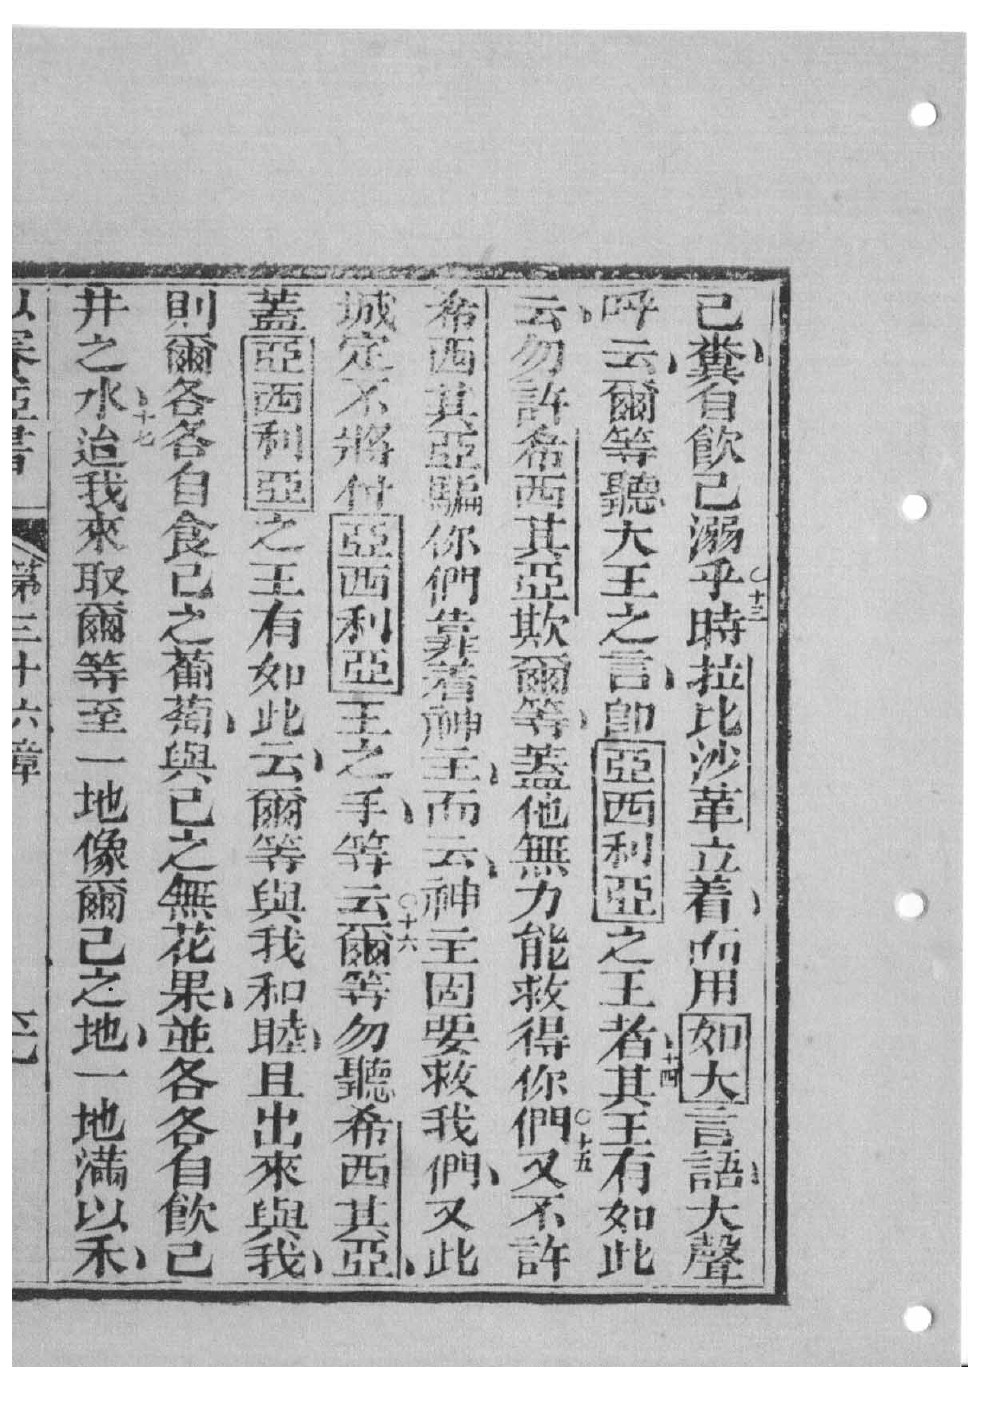 己糞自飲己溺乎〇十三時拉比沙革立着而用如大言語大聲
呼云爾等聽大王之言卽亞西利亞之王者〇十四其王有如此
云勿許希西其亞欺爾等蓋他無力能救得你們〇十五又不許
希西其亞騙你們靠着神主而云神主固要救我們又此
城定不將付亞西利亞王之手等云〇十六爾等勿聽希西其亞
蓋亞西利亞之王有如此云爾等與我和睦且出來與我
則爾各各自食己之葡萄與己之無花果並各各自飲己
井之水〇十七迨我來取爾等至一地像爾己之地一地滿以禾
以賽亞書 第三十六章